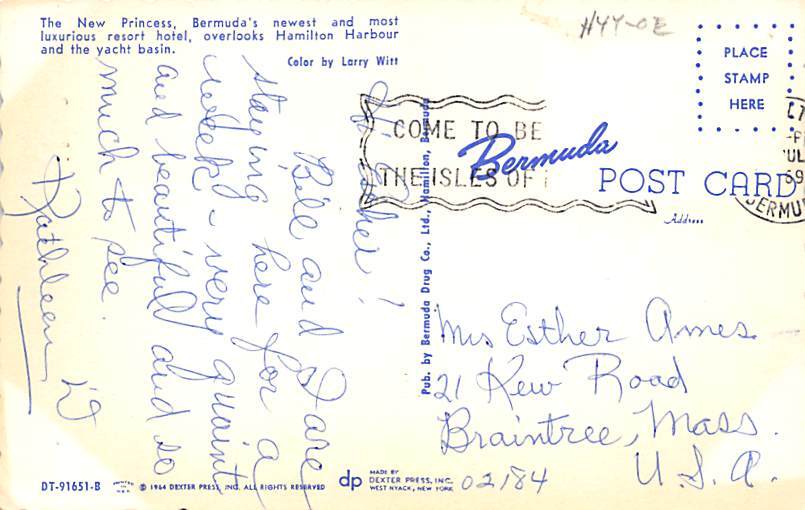 The New Princess, Bermuda's newest and most
luxurious resort hotel, overlooks Hamilton Harbour
and the yacht basin.
Color by Larry Witt
Hi Esther!
Bill and I are
staying here for a
week - very quaint
and beautiful and so
much to see.
Kathleen D
Pub. by Bermuda Drug Co., Ltd., Hamilton, Bermuda
H44-OE
PLACE
STAMP
HERE
COME TO BE
THE ISLES OF
Bermuda
POST CARD
Address
Mrs Esther Ames
21 Kew Road
Braintree, Mass.
02184 U.S.A.
DT-91651-B
© 1964 DEXTER PRESS, INC. ALL RIGHTS RESERVED
dp
MADE BY
DEXTER PRESS, INC.
WEST NYACK, NEW YORK